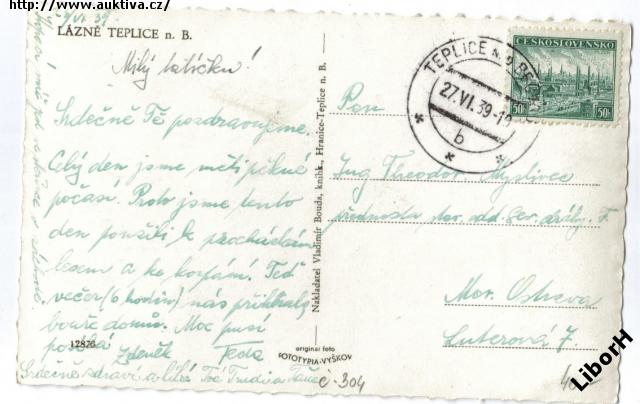 http://www.auktiva.cz/
LÁZNĚ TEPLICE n. B.
Milý tatíčku!
Srdečně Tě pozdravujeme.
Celý den jsme měli pěkné
počasí. Proto jsme tento
den použili k procházkám
lesem a ke koupání. Teď
večer (6 hodin) nás přihnala
bouře domů. Moc pusí
posílá Zdeněk Feda
Srdečně zdraví a líbá Tvá
12876
original foto
FOTOTYPIA-VYŠKOV
č-304
Nakladatel Vladimír Bouda, knihk., Hranice-Teplice n. B.
TEPLICE N. BEČ
27.VI.39
b
ČESKOSLOVENSKO
50h 50h
Pan
Ing Theodor Myslivec
přednosta
Mor. Ostrava
Luterová 7.
LiborH